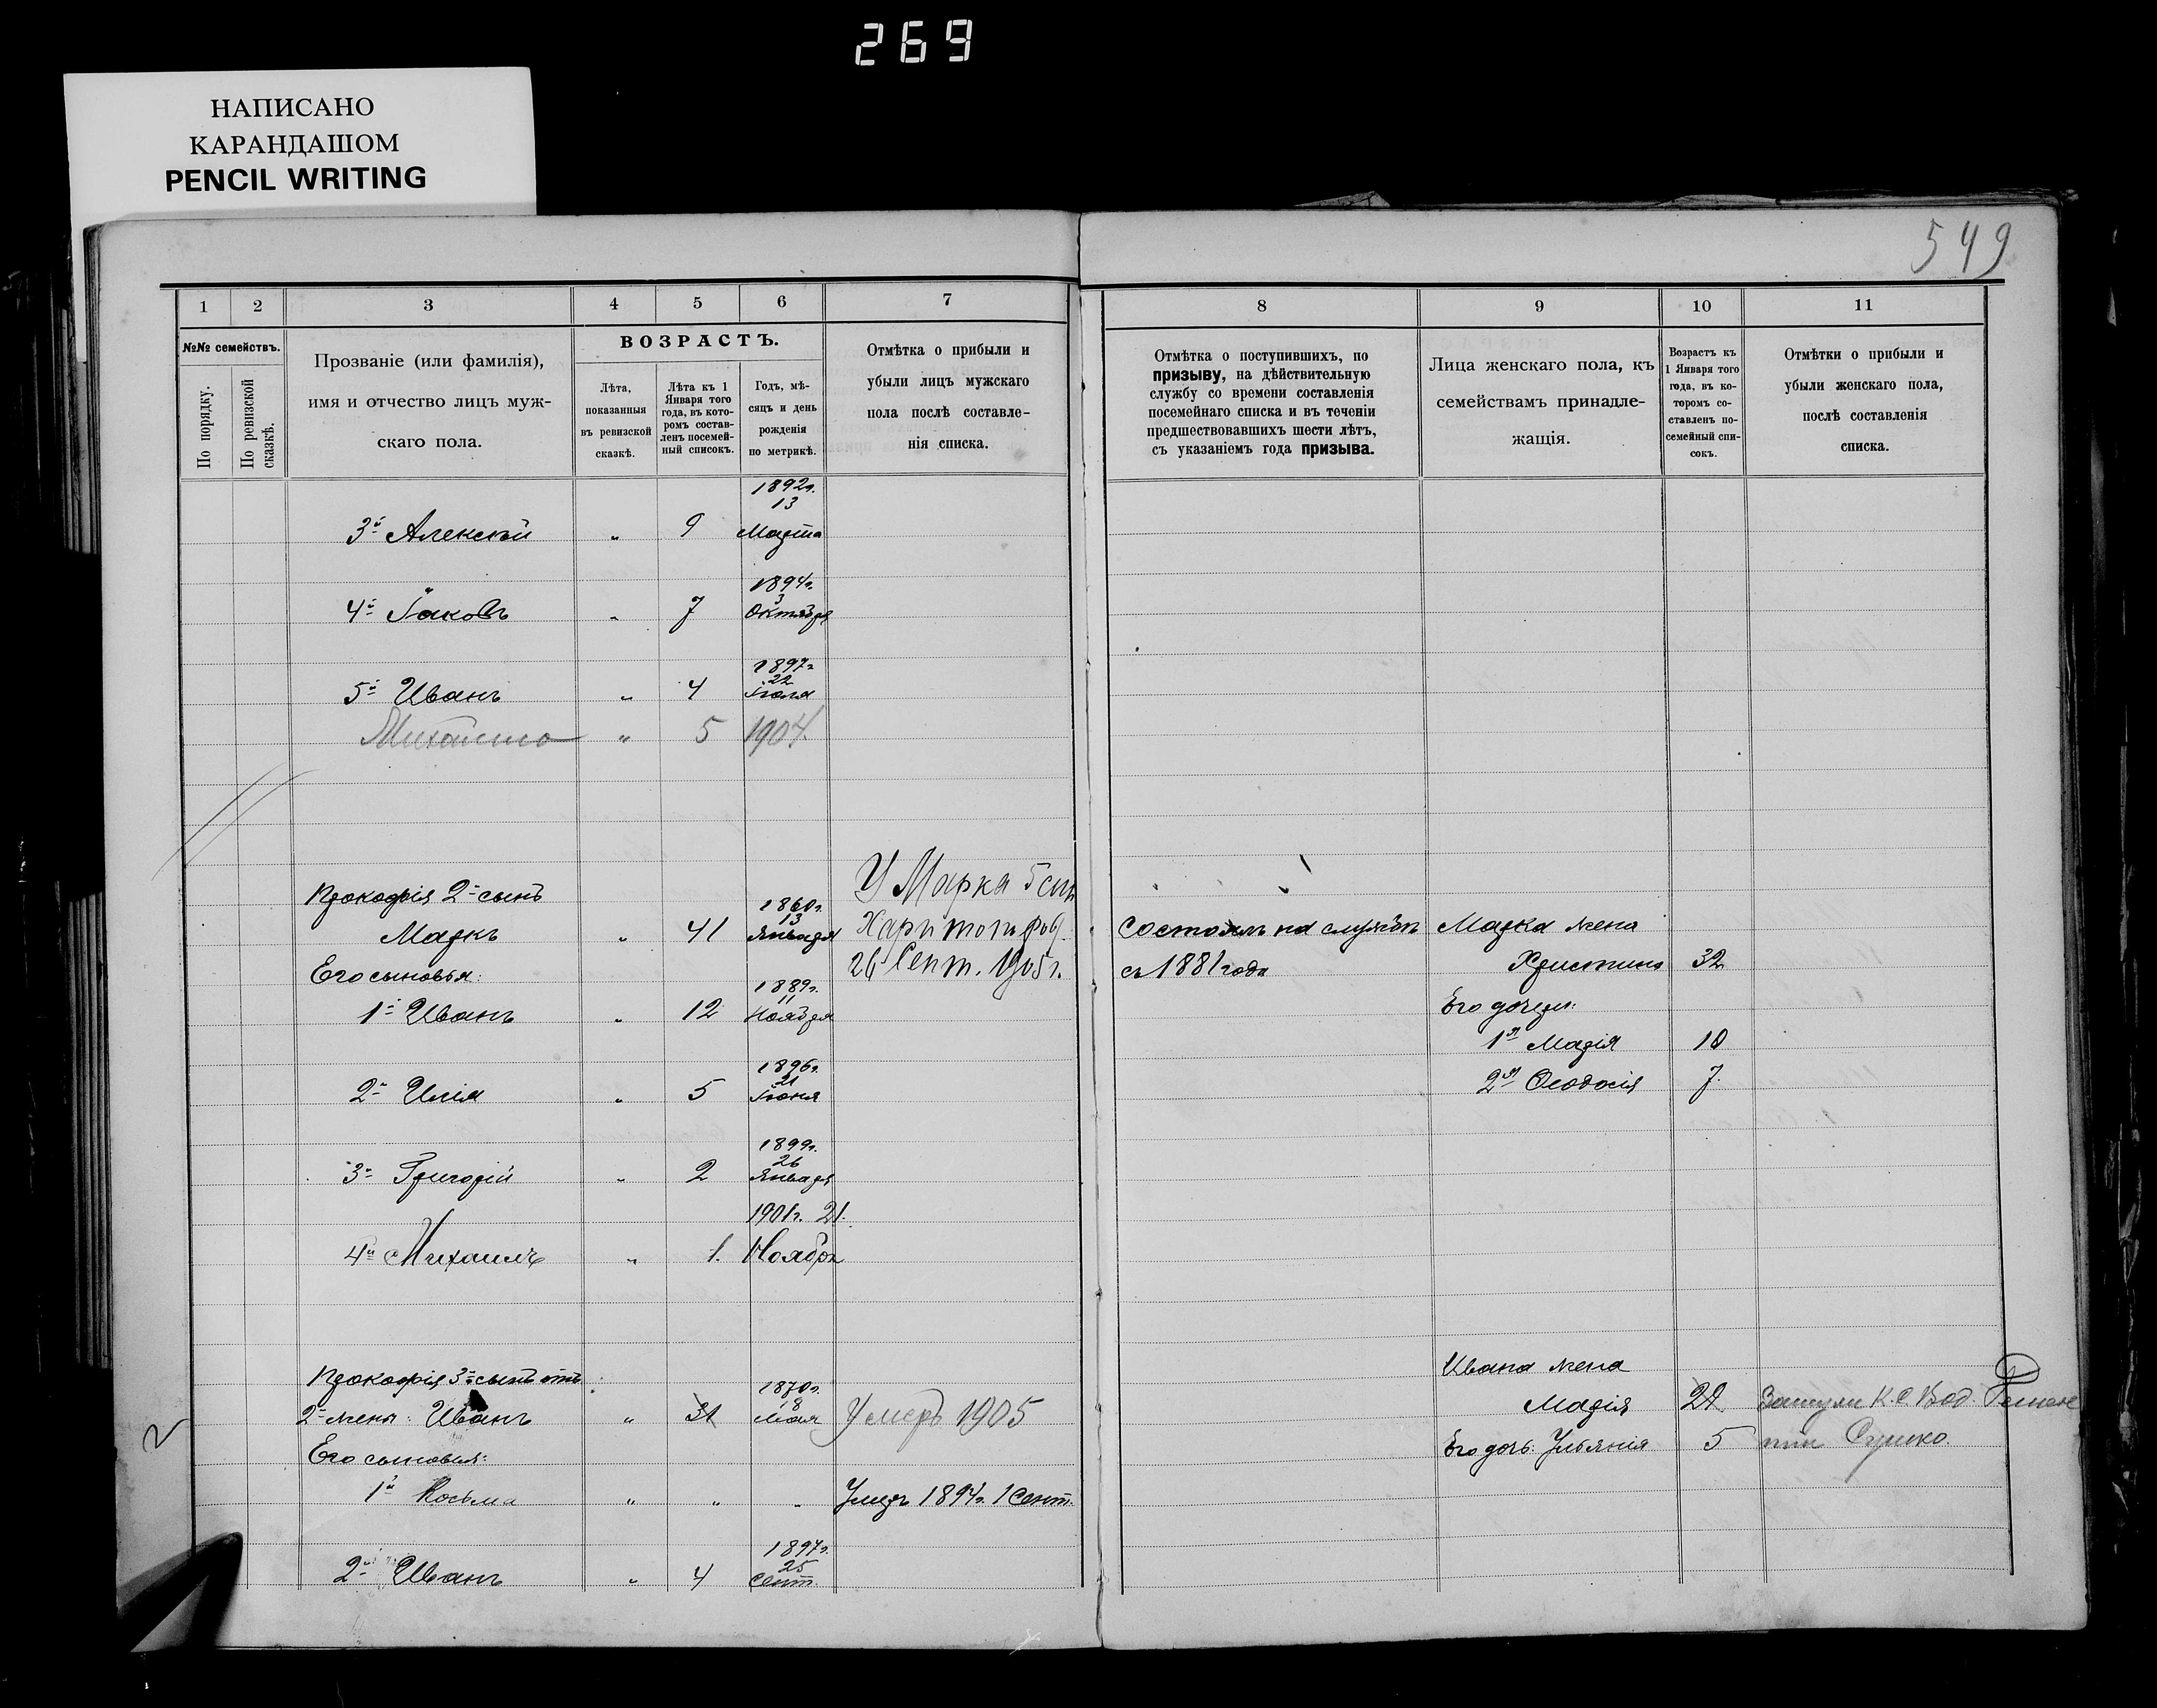 269
НАПИСАНО
КАРАНДАШОМ
PENCIL WRITING
549
1 2 3 4 5 6 7
№№ семействъ.
По порядку.
По ревизской сказкѣ.
Прозваніе (или фамилія),
имя и отчество лицъ муж-
скаго пола.
ВОЗРАСТЪ.
Лѣта,
показанныя
въ ревизской
сказкѣ.
Лѣта къ 1
Января того
года, въ кото-
ромъ состав-
ленъ посемей-
ный списокъ.
Годъ, мѣ-
сяцъ и день
рожденія
по метрикѣ.
Отмѣтка о прибыли и
убыли лицъ мужскаго
пола послѣ составле-
нія списка.
1892г.
13
3й Алексѣй " 9 Марта
1894г.
3
4й Іаковъ " 7 Октября
1897г.
22
5й Иванъ " 4 Іюля
Михаило " 5 1904.
Прокофія 2й сынъ
1860г.
13
Маркъ " 41 Января
У Марка
Харитонъ род.
26 Сент. 1905г.
Его сыновья:
1889г.
11
1й Иванъ " 12 Ноября
1896г.
21
2й Илія " 5 Іюня
1899г.
26
3й Григорій " 2 Января
1901г. 21.
4й Михаилъ " 1. Ноября
Прокофія 3й сынъ отъ
1870г.
8
2й жены: Иванъ " 31 Мая Умеръ 1905
Его сыновья:
1й Косьма " " " Умеръ 1894г. 1 Сент.
1897г.
25
2й Иванъ " 4 Сент.
8 9 10 11
Отмѣтка о поступившихъ, по
призыву, на дѣйствительную
службу со времени составленія
посемейнаго списка и въ теченіи
предшествовавшихъ шести лѣтъ,
съ указаніемъ года призыва.
Лица женскаго пола, къ
семействамъ принадле-
жащія.
Возрастъ къ
1 Января того
года, въ ко-
торомъ со-
ставленъ по-
семейный спи-
сокъ.
Отмѣтки о прибыли и
убыли женскаго пола,
послѣ составленія
списка.
Состоялъ на службѣ
съ 1881 года
Марка жена
Христина 32
Его дочери:
1я Марія 10
2я Ѳеодосія 7.
Ивана жена
Марія 29 Замужи К. С. Вод.
Его дочь: Ульянія 5 Сушко.
2